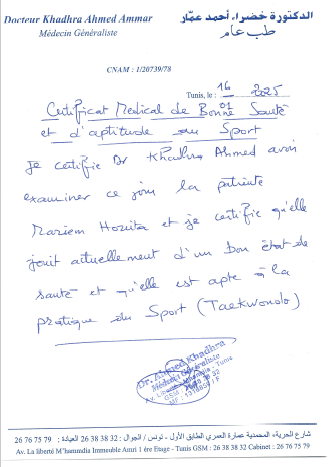 Docteur Khadhra Ahmed Ammar
Médecin Généraliste
الدكتورة خضراء أحمد عمّار
طب عام
CNAM : 1/20739/78
Tunis, le : 16 01 2025
Certificat Medical de Bonne Santé
et d'aptitude au Sport
Je certifie Dr Khadhra Ahmed avoir
examiner ce jour la patiente
Mariem et je certifie qu'elle
jouit actuellement d'un bon état de
santé et qu'elle est apte à la
pratique du Sport (Taekwondo)
Dr. Ahmed Khadhra
Médecin Généraliste
شارع الحرية، المحمدية عمارة العمري الطابق الأول - تونس / الجوال : 32 38 38 26 العيادة : 79 75 76 26
Av. La liberté M'hammdia Immeuble Amri 1 ére Etage - Tunis GSM : 26 38 38 32 Cabinet : 26 76 75 79